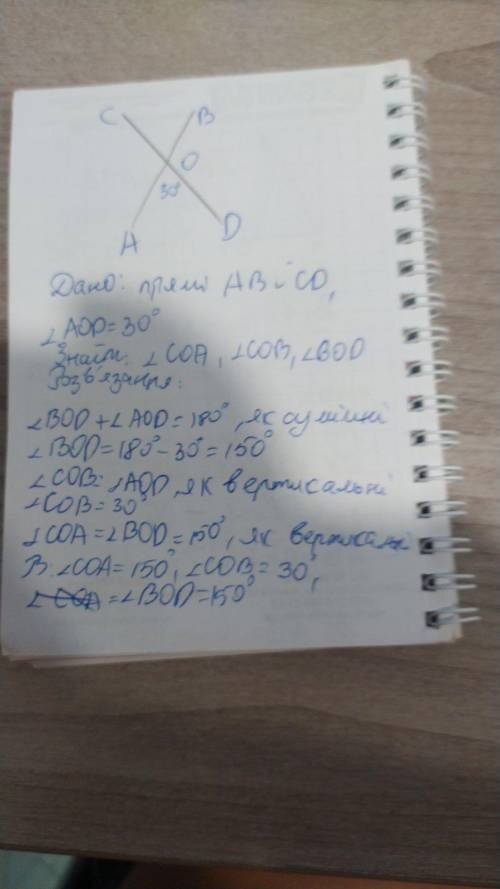 C B
O
30°
A D
Дано: прямі AB і CD,
∠AOD=30°
Знайти: ∠COA, ∠COB, ∠BOD
Розв'язання:
∠BOD+∠AOD=180°, як суміжні
∠BOD=180°-30°=150°
∠COB=∠AOD, як вертикальні
∠COB=30°
∠COA=∠BOD=150°, як вертикальні
В. ∠COA=150°, ∠COB=30°,
∠COA=∠BOD=150°